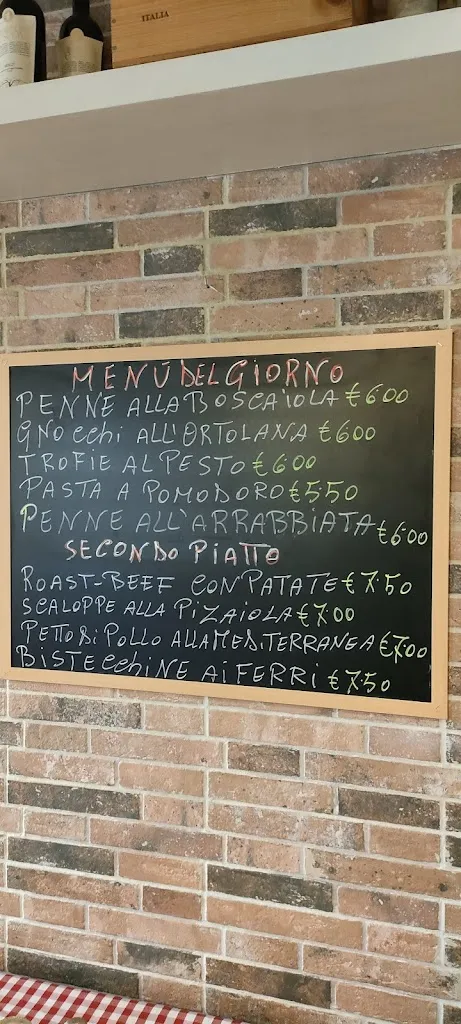 ITALIA
MENÚ DEL GIORNO
PENNE ALLA BOSCAIOLA €600
GNOCCHI ALL'ORTOLANA €600
TROFIE AL PESTO €600
PASTA A POMODORO €550
PENNE ALL'ARRABBIATA €600
SECONDO PIATTO
ROAST-BEEF CON PATATE €7.50
SCALOPPE ALLA PIZAIOLA €7.00
PETTO DI POLLO ALLA MEDITERRANEA €7.00
BISTECCHINE AI FERRI €7.50